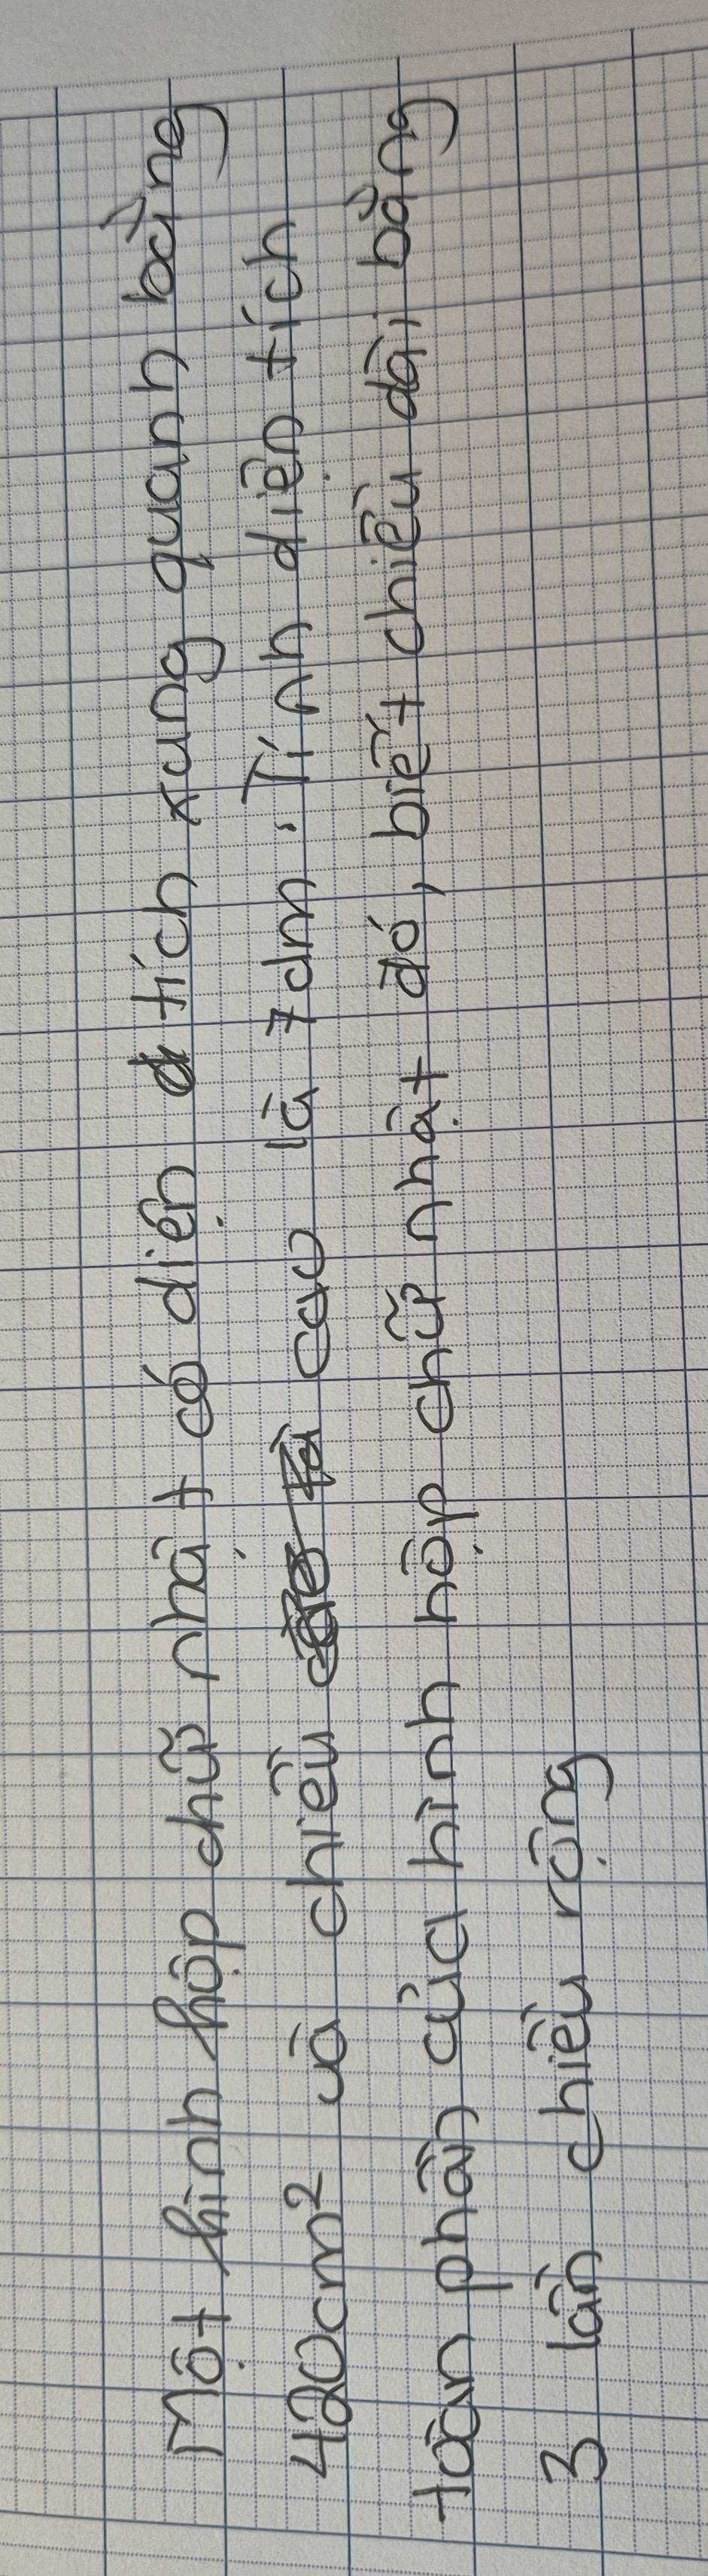 Một hình hộp chữ nhật có diện tích xung quanh bằng
420cm² và chiều cao là 7dm. Tính diện tích
toàn phần của hình hộp chữ nhật đó, biết chiều dài bằng
3 lần chiều rộng